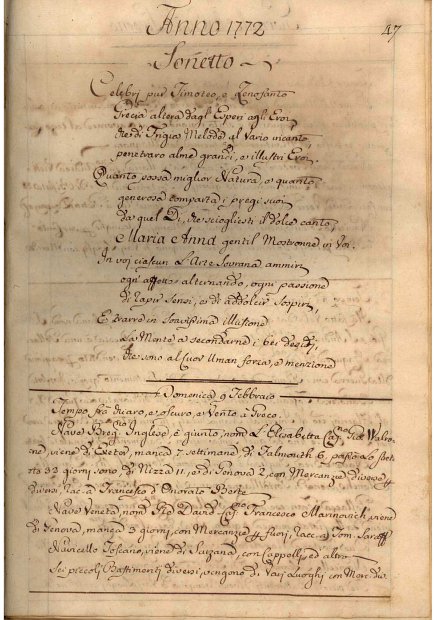 Anno 1772
47
Sonetto
Celebri pur Timoteo, e Zenofanto
Grecia altera dagl'Esperi agli Eroi,
che di Frigia Melode al vario incanto,
penetraro alme grandi, e illustri Eroi.
Quanto possa miglior Natura, e quanto
generosa comparta i pregi suoi
da quel Dì, che sciogliesti il dolce canto,
Maria e Anna gentil Mostronne in Voi.
In voi ciascun l'Arte Sovrana ammiri
ogn'affetto alternando, ogni passione
di rapir Sensi, e di addolcir Sospiri,
E trarre in soavissima illusione
La Mente a secondarne i bei desiri,
che sono al cuor Uman forza, e menzione
Domenica 9 Febbraio
Tempo fra chiaro, e oscuro, e Vento a Greco
Nave Inglese, è giunto, nom. L'Elisabetta Cap.no
viene di Exeter, manca 7 settimane di Falmouth 6, passò Lo Stretto
33 giorni sono di Nizza 11, e di Genova 2, con Mercanzie diverse
racc. a Francesco d'Onorato Berte
Nave Veneta, nom. David Cap.no Francesco Marinovich, viene
di Genova, manca 3 giorni, con Mercanzie fuori, racc. a Tom.
Navicello Toscano, viene di Sarzana, con Cappelli, ed altro
Sei piccoli Bastimenti diversi, vengono di Varj Luoghi con Merc. div.